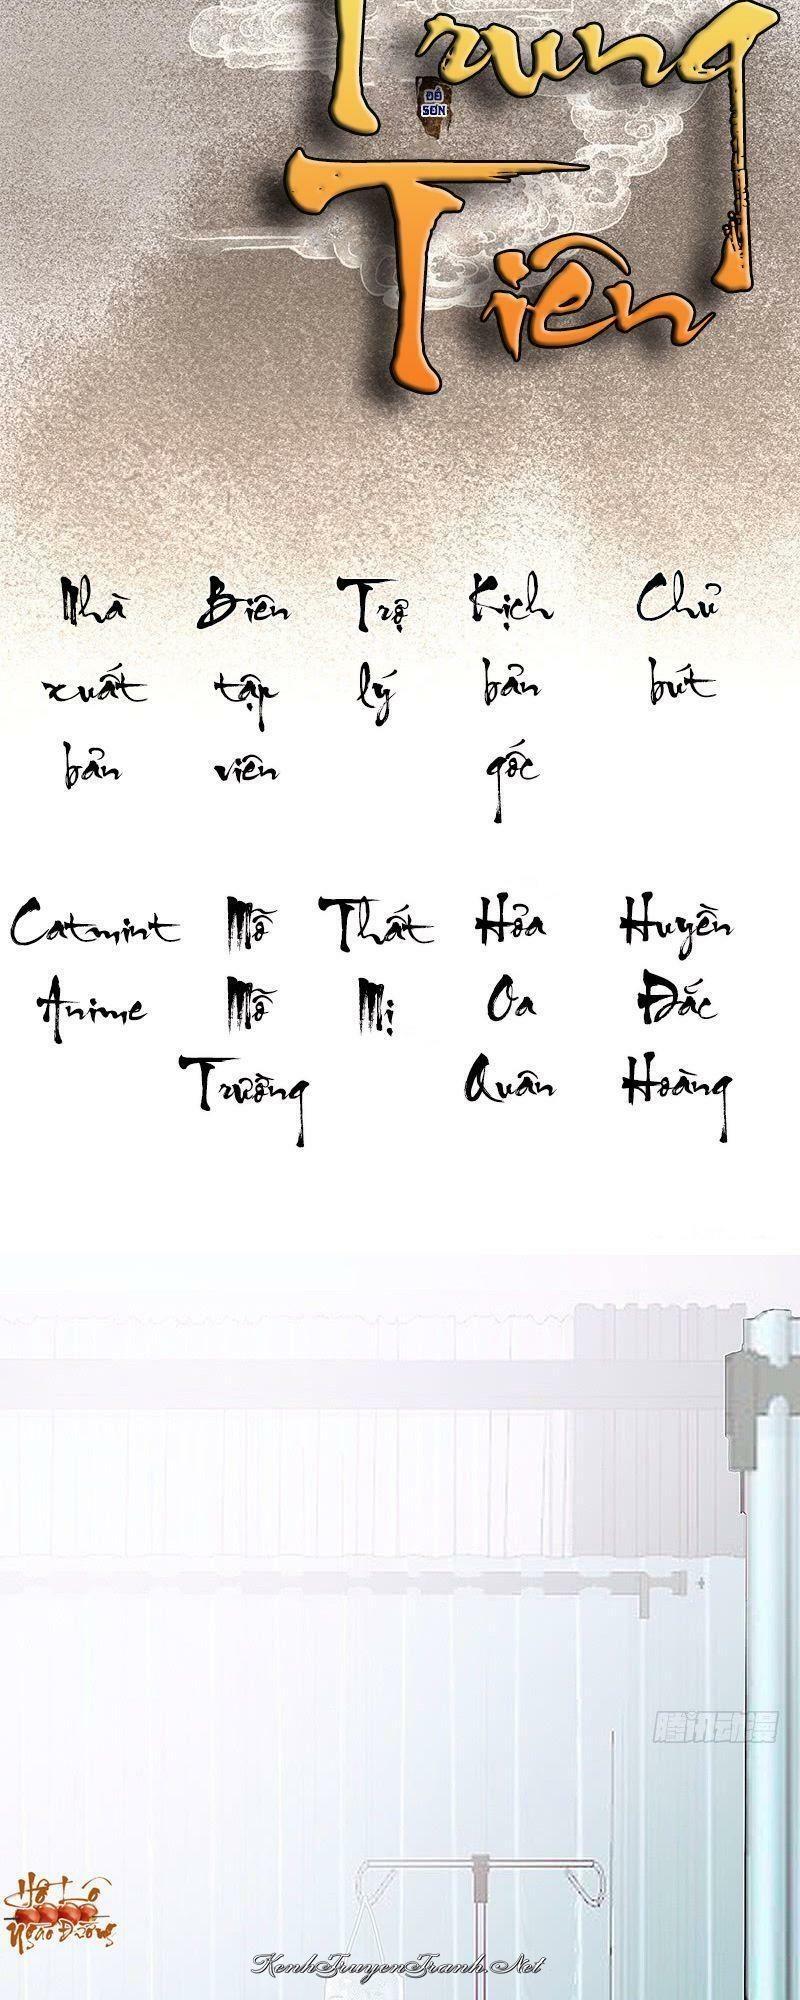 Trung
ĐỒ
SƠN
Tiên
Nhà xuất bản
Biên tập viên
Trợ lý
Kịch bản gốc
Chủ bút
Catmint Anime
Mỗ Mỗ Trường
Thất Mị
Hỏa Oa Quân
Huyền Đắc Hoàng
腾讯动漫
Hồ Lô
Ngào Đường
KenhTruyenTranh.Net